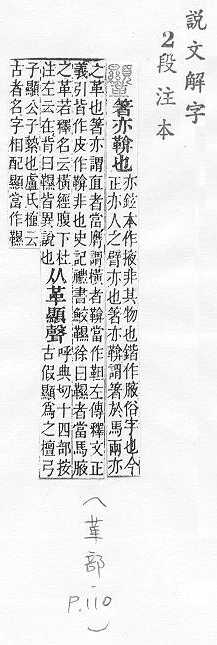 説文解字
2段注本
韅 箸亦鞥也
亦鉉本作掖非其物也鍇作腋俗字也今
正亦人之臂亦也箸亦鞥謂箸於馬兩亦
之革也箸亦謂直者當膺謂橫者鞥當作靼左傳釋文正
義引皆作皮作鞥非也史記禮書鮫韅徐曰韅者當馬腋
之革若釋名云橫經腹下杜
注左云在背曰韅皆異說也
从革顯聲
呼典切十四部按
古假顯爲之檀弓
子顯公子縶也盧氏植云
古者名字相配顯當作韅
(革部. P.110)